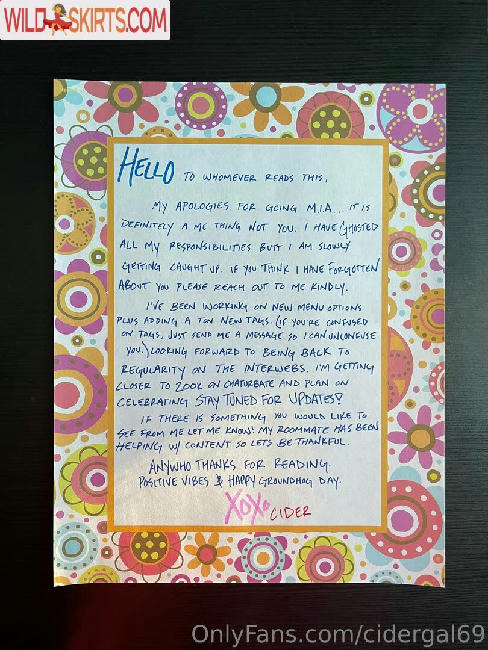 WILDSKIRTS.COM
HELLO TO WHOMEVER READS THIS,
MY APOLOGIES FOR GOING M.I.A... IT IS
DEFINITELY A ME THING NOT YOU. I HAVE GHOSTED
ALL MY RESPONSIBILITIES BUTT I AM SLOWLY
GETTING CAUGHT UP. IF YOU THINK I HAVE FORGOTTEN
ABOUT YOU PLEASE REACH OUT TO ME KINDLY.
I'VE BEEN WORKING ON NEW MENU OPTIONS
PLUS ADDING A TON NEW TAGS. (IF YOU'RE CONFUSED
ON TAGS, JUST SEND ME A MESSAGE SO I CAN UNCONFUSE
YOU.) LOOKING FORWARD TO BEING BACK TO
REGULARITY ON THE INTERWEBS. I'M GETTING
CLOSER TO 200K ON CHATURBATE AND PLAN ON
CELEBRATING STAY TUNED FOR UPDATES!
IF THERE IS SOMETHING YOU WOULD LIKE TO
SEE FROM ME LET ME KNOW! MY ROOMMATE HAS BEEN
HELPING W/ CONTENT SO LETS BE THANKFUL.
ANYWHO THANKS FOR READING
POSITIVE VIBES & HAPPY GROUNDHOG DAY.
XOXO CIDER
OnlyFans.com/cidergal69